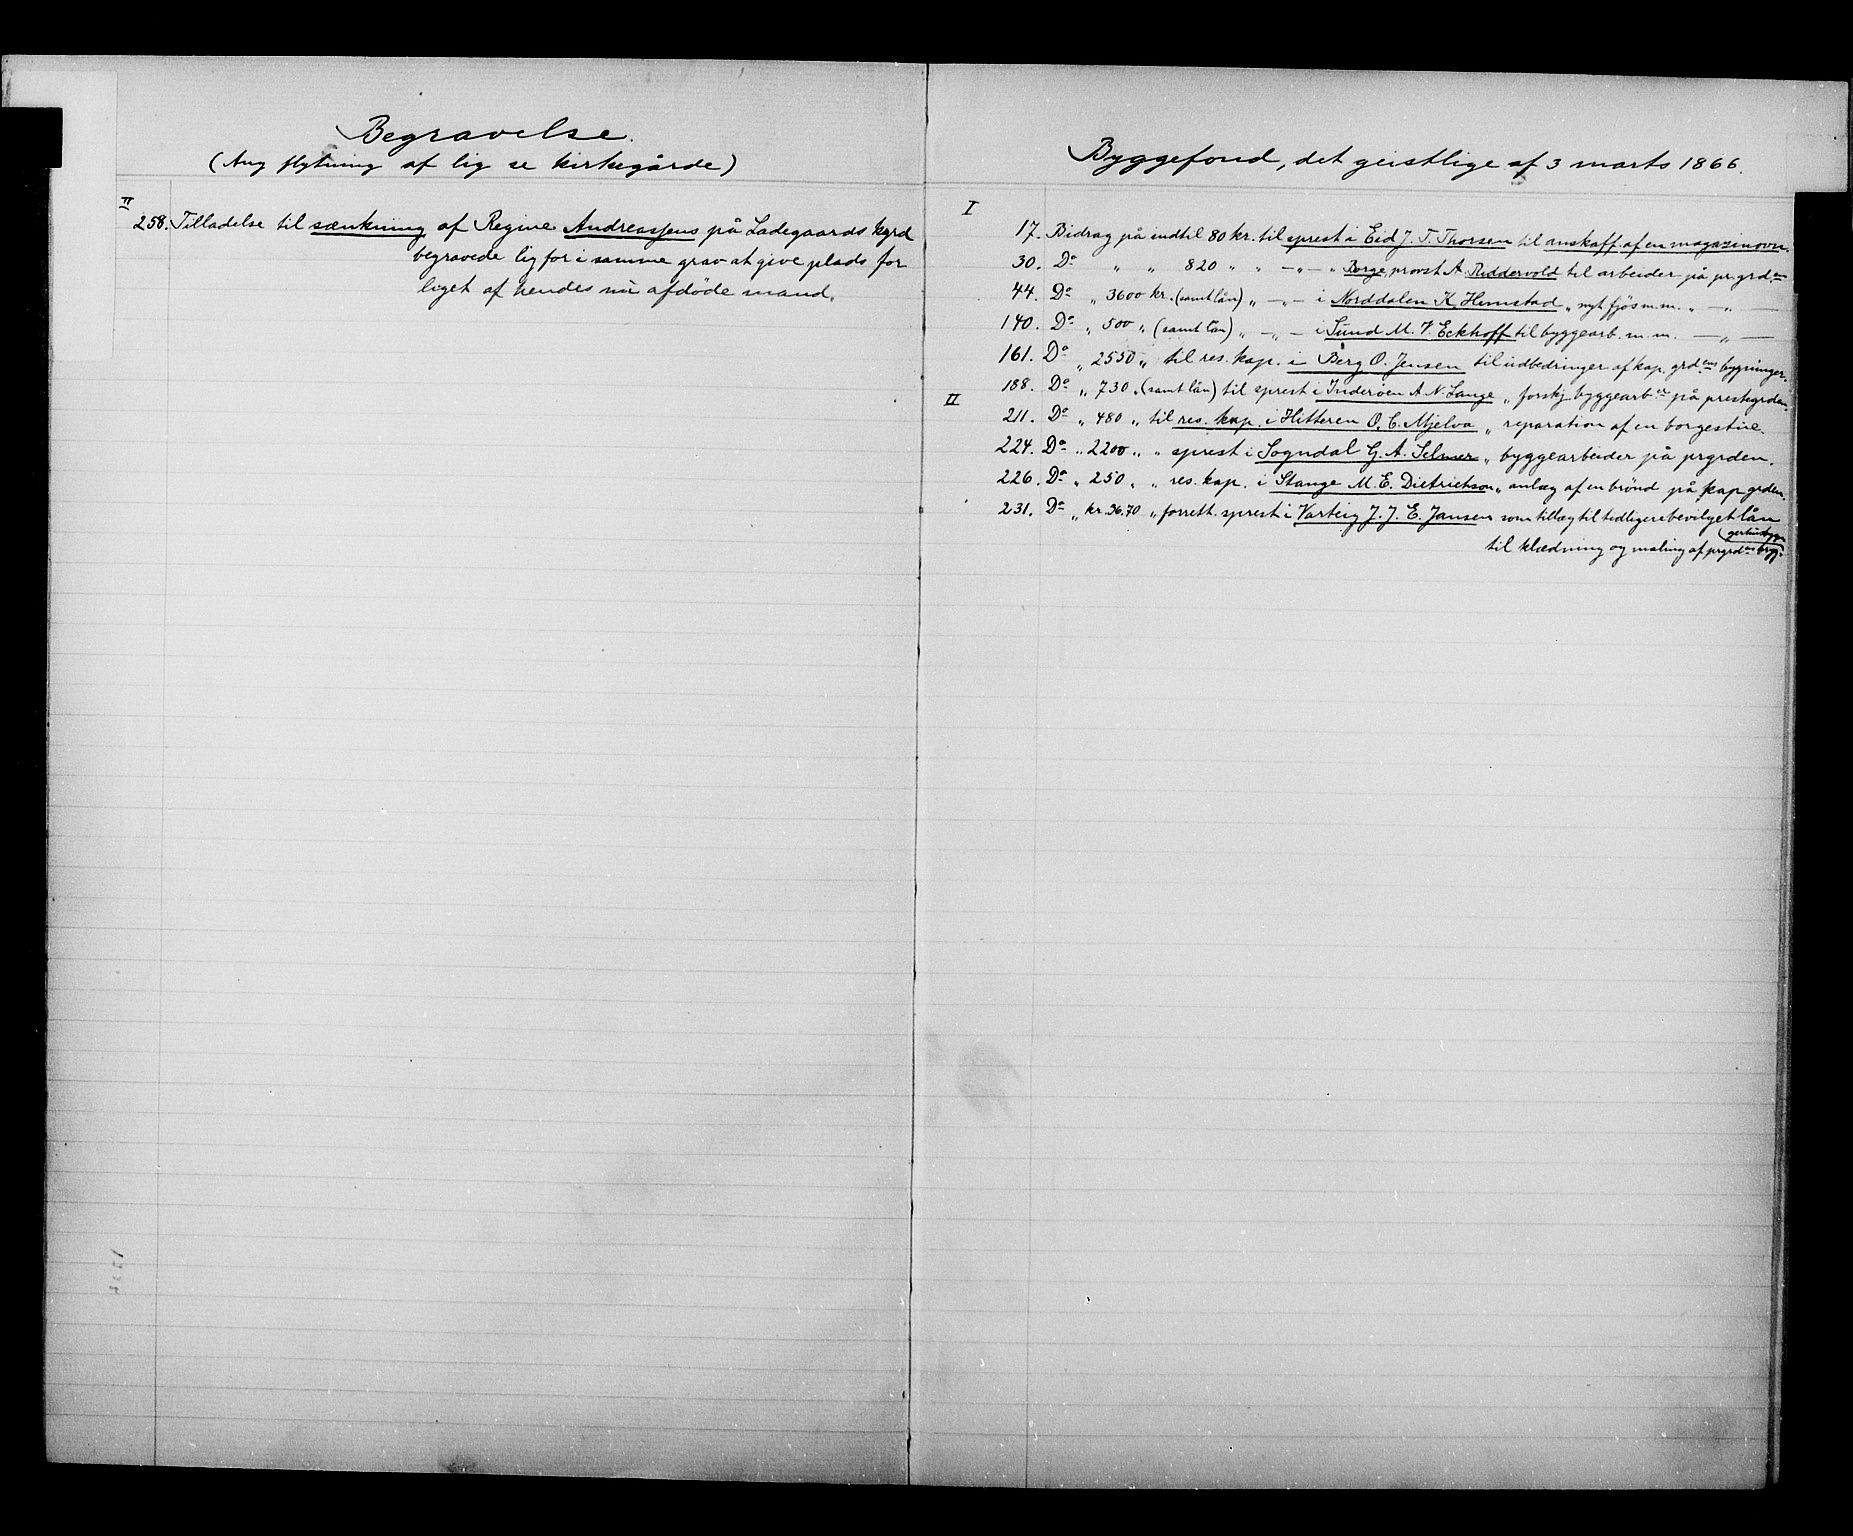 Begravelse.
(Ang flytning af lig se kirkegårde)
II
258. Tilladelse til sænkning af Regine Andreassens på Ladegaards kgrd
begravede lig for i samme grav at give plads for
liget af hendes nu afdöde mand.
Byggefond, det geistlige af 3 marts 1866.
I
17. Bidrag på indtil 80 kr. til sprest i Eid J. T. Thorsen til anskaff. af en magazinovn.
30. Do " " 820 " " — " — " Borge, provst A Riddervold til arbeider på prgrden
44. Do " 3600 kr. (samt lån) " — " — i Norddalen K. Hemstad " nyt fjös m.m. " — " —
140. Do " 500 " (samt lån) " — " — i Sund M. V. Eckhoff til byggearb. m.m. — " —
161. Do " 2550 " til res. kap. i Berg O. Jensen til udbedringer af kap. grd.ens bygninger.
188. Do " 730 " (samt lån) til sprest i Inderøen A. N. Lange " forskj byggearber på prestegrden.
II
211. Do " 480 " til res. kap. i Hitteren O. C. Mjelva " reparation af en borgestue
224. Do " 2200 " " sprest i Sogndal G. A. Selmer " byggearbeider på prgrden.
226. Do " 250 " " res. kap. i Stange M. E. Dietrichson " anlæg af en brönd på kap grden.
231. Do " kr. 36.70 " forrett. sprest i Varteig J. J. E. Jansen som tillæg til tidligere bevilget lån
til klædning og maling af prgrdens bygg.